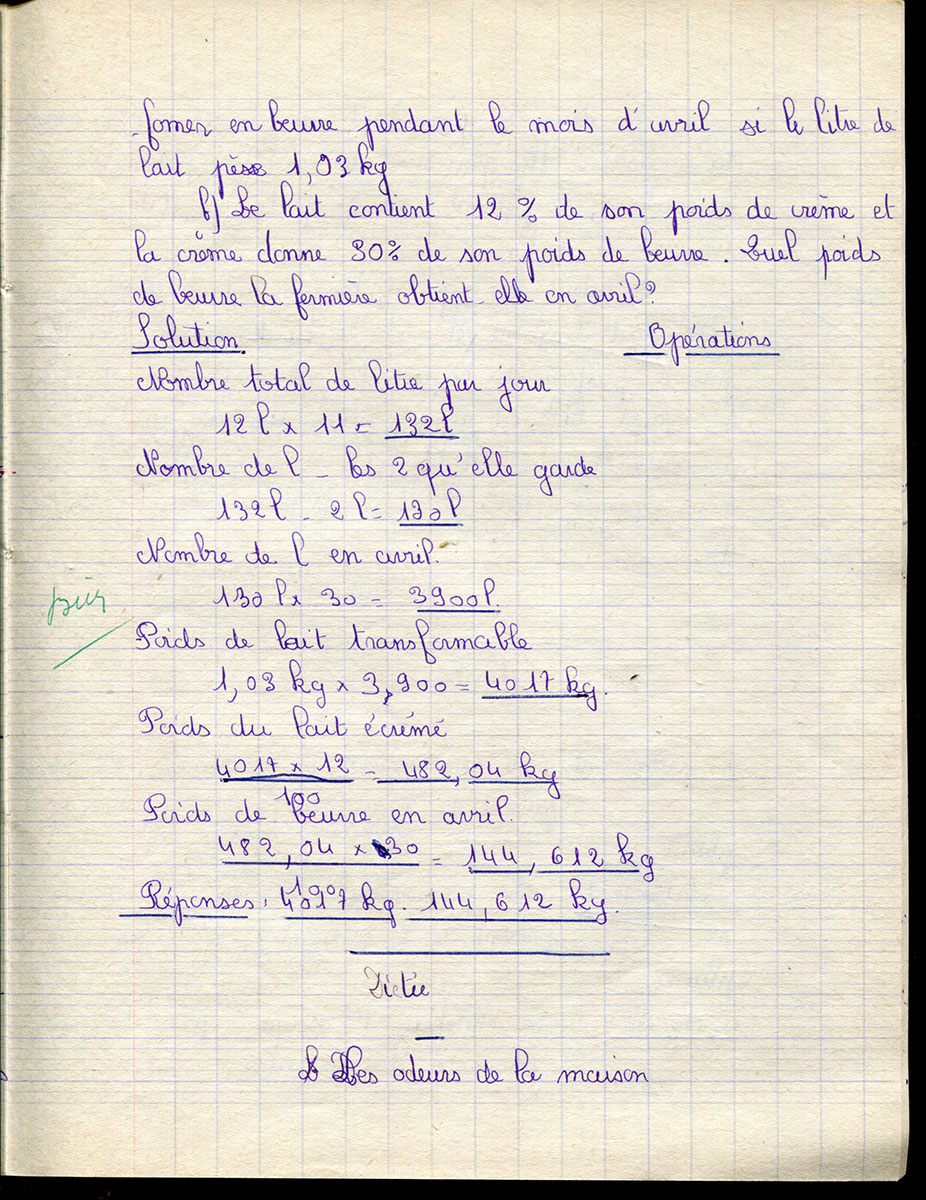 -fomer en beurre pendant le mois d'avril si le litre de
lait pèse 1,03 kg
b) Le lait contient 12 % de son poids de crème et
la crème donne 30% de son poids de beurre. Quel poids
de beurre la fermière obtient-elle en avril?
Solution. Opérations
Nombre total de litre par jour
12 l x 11 = 132 l
Nombre de l - les 2 qu'elle garde
132 l - 2 l = 130 l
Nombre de l en avril.
130 l x 30 = 3900 l.
Poids de lait transformable
1,03 kg x 3,900 = 4017 kg.
Poids du lait écrémé
4017 x 12 = 482,04 kg
100
Poids de beurre en avril.
482,04 x 30 = 144,612 kg
100
Réponses: 4017 kg. 144,612 kg.
Dictée
Les odeurs de la maison